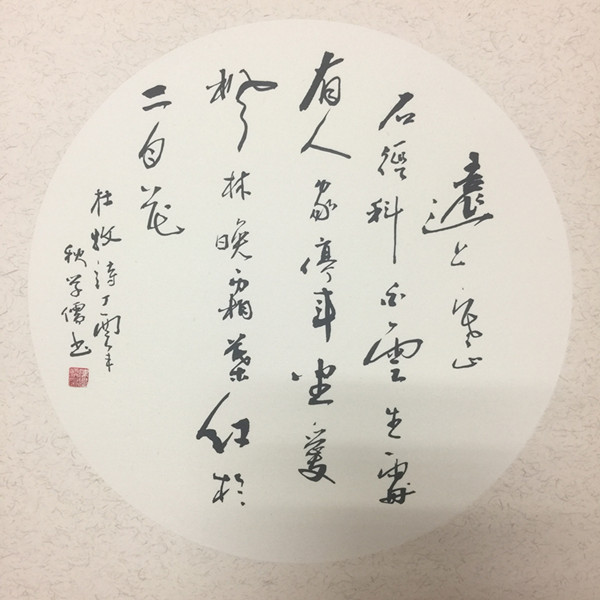 遠上寒山
石徑斜白雲生處
有人家停車坐愛
楓林晚霜葉紅於
二月花
杜牧詩丁酉年
秋学儒书